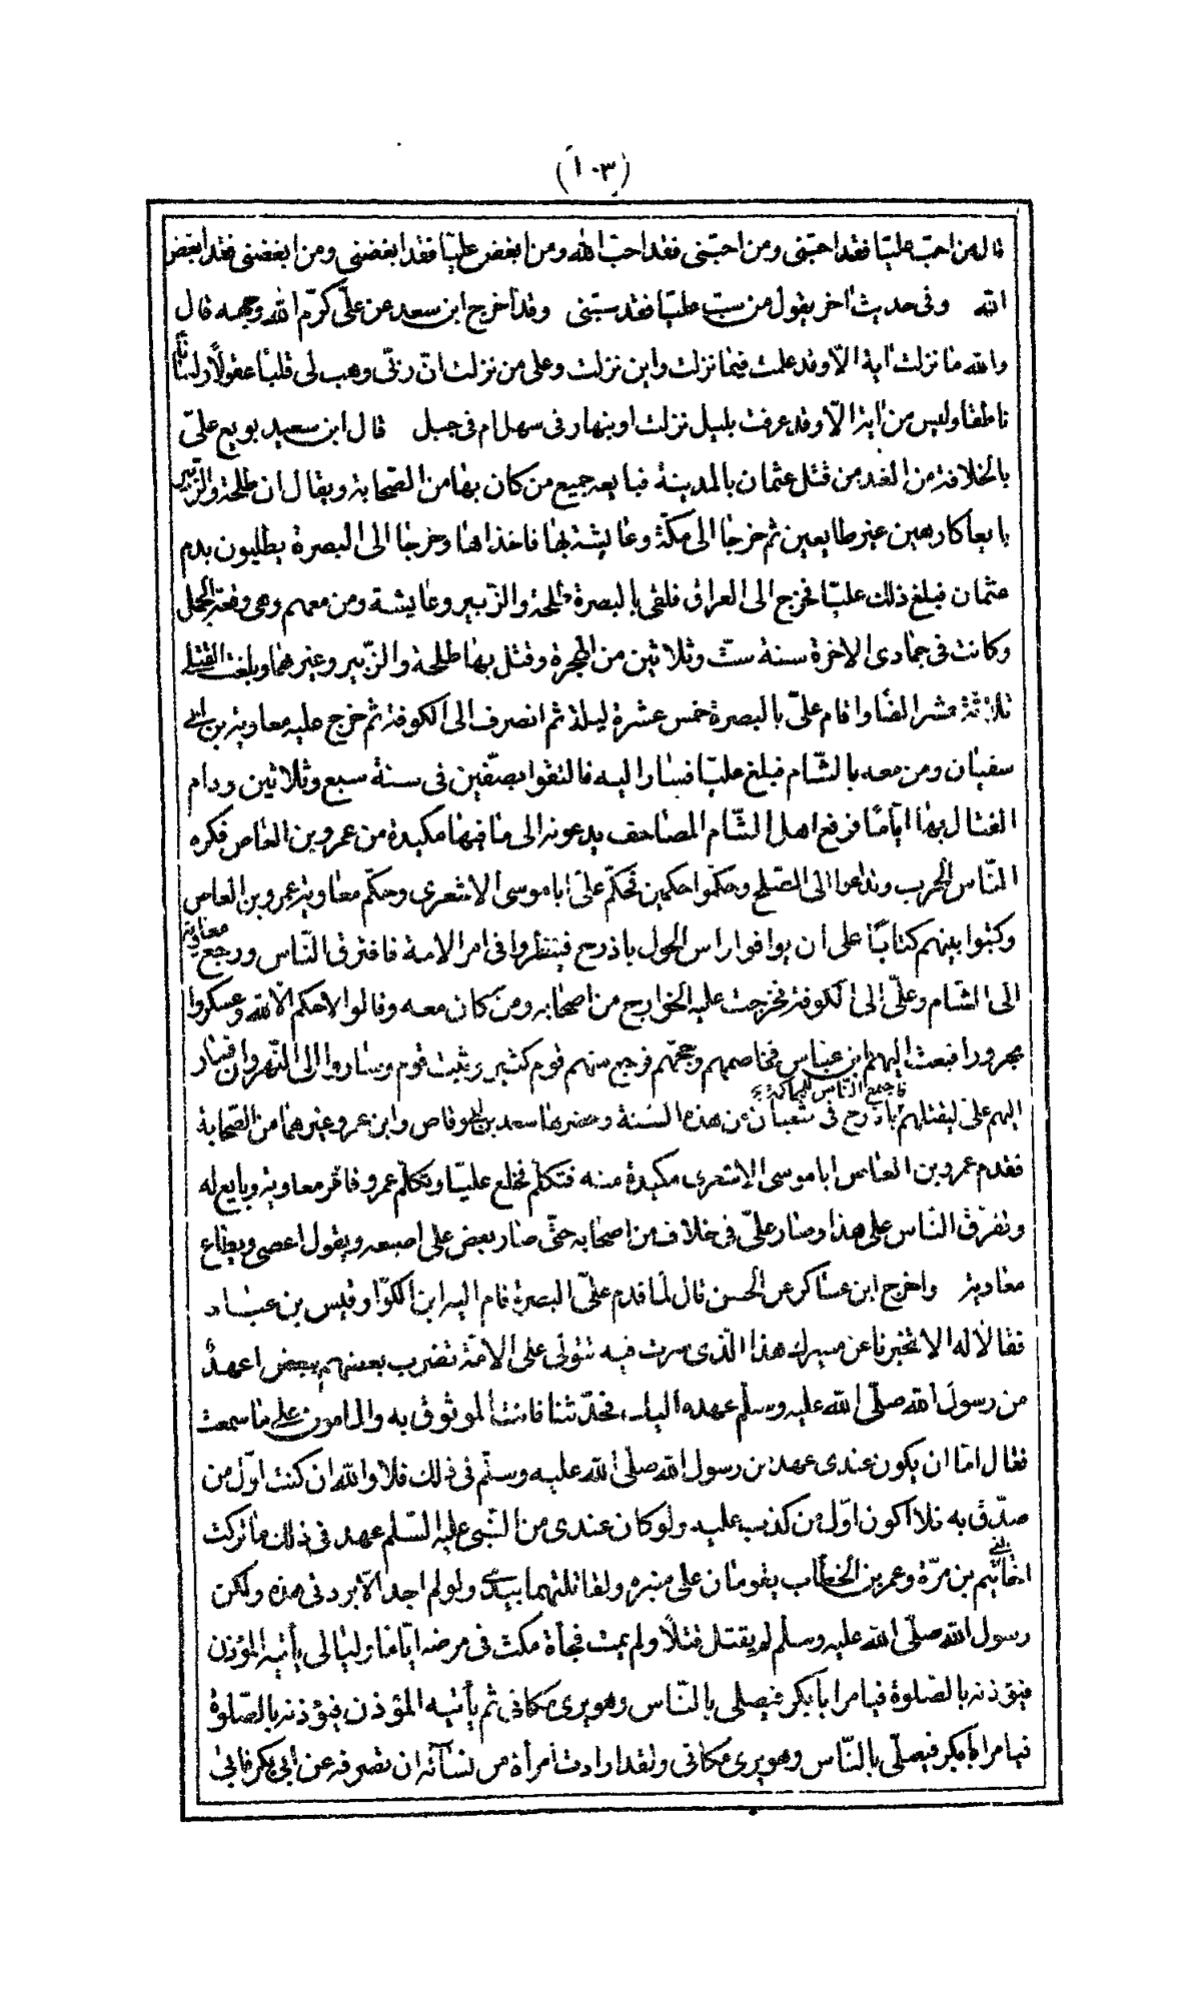 (١٠٣)
قال من احبّ عليّا فقد احبّنى ومن احبّنى فقد احبّ الله ومن ابغض عليّا فقد ابغضنى ومن ابغضنى فقد ابغض
الله وفى حديث اخر يقول من سبّ عليّا فقد سبّنى وقد اخرج ابن سعد عن علىّ كرّم الله وجهه قال
والله ما نزلت اية الّا وقد علمت فيما نزلت واين نزلت وعلى من نزلت انّ ربّى وهب لى قلبًا عقولًا ولسانا
ناطقا وليس من اية الّا وقد عرفت بليل نزلت او بنهار فى سهل ام فى جبل قال ابن سعيد بويع علىّ
بالخلافة من الغد من قتل عثمان بالمدينة فبايعه جميع من كان بها من الصّحابة ويقال ان طلحة والزّبير
بايعا كارهين غير طايعين ثم خرجا الى مكّة وعايشة بها فاخذاها وخرجا الى البصرة يطلبون بدم
عثمان فبلغ ذلك عليّا فخرج الى العراق فلقى بالبصرة طلحة والزّبير وعايشة ومن معهم وهى وقعة الجمل
وكانت فى جمادى الاخرة سنة ستّ وثلاثين من الهجرة وقتل بها طلحة والزّبير وغيرهما وبلغت القتلى
ثلاثة عشر الفًا واقام علىّ بالبصرة خمس عشرة ليلة ثم انصرف الى الكوفة ثم خرج عليه معاوية بن ابى
سفيان ومن معه بالشّام فبلغ عليّا فسار اليه فالتقوا بصفّين فى سنة سبع وثلاثين ودام
القتال بها ايّامًا فرفع اهل الشّام المصاحف يدعونه الى ما فيها مكيدة من عمرو بن العاص فكره
النّاس الحرب وتداعوا الى الصّلح وحكّموا حكمين فحكّم علىّ ابا موسى الاشعرى وحكّم معاوية عمرو بن العاص
وكتبوا بينهم كتابًا على ان يوافوا راس الحول باذرح فينظروا فى امر الامة فافترق النّاس ورجع معاوية
الى الشّام وعلىّ الى الكوفة فخرجت عليه الخوارج من اصحابه ومن كان معه وقالوا لا حكم الّا لله وعسكروا
بحرورا فبعث اليهم ابن عباس فخاصمهم وحجّهم فرجع منهم قوم كثير وثبت قوم وساروا الى النّهروان فسار
اليهم علىّ ليقتلهم فاجمع النّاس باذرح فى شعبان من هذه السّنة وحضرها سعد بن ابى وقاص وابن عمرو غيرهما من الصّحابة
فقدم عمرو بن العاص ابا موسى الاشعرى مكيدة منه فتكلّم فخلع عليّا وتكلّم عمرو فاقر معاوية وبايع له
وتفرّق النّاس على هذا وصار علىّ فى خلاف من اصحابه حتّى صار يعض على اصبعه ويقول اعصى ويطاع
معاوية واخرج ابن عساكر عن الحسن قال لمّا قدم علىّ البصرة قام اليه ابن الكوّا وقيس بن عباد
فقالا له الا تخبرنا عن مسيرك هذا الّذى سرت فيه تتولّى على الامّة تضرب بعضهم ببعض اعهدٌ
من رسول الله صلّى الله عليه وسلّم عهده اليك فحدّثنا فانت الموثوق به والمامون على ما سمعت
فقال امّا ان يكون عندى عهد من رسول الله صلّى الله عليه وسلّم فى ذلك فلا والله ان كنت اوّل من
صدّق به فلا اكون اوّل من كذب عليه ولو كان عندى من النّبى عليه السّلم عهد فى ذلك ما تركت
اخا بنى تيم بن مرّة وعمر بن الخطّاب يقومان على منبره ولقاتلتهما بيدى ولو لم اجد الّا بردتى هذه ولكن
رسول الله صلّى الله عليه وسلم لم يقتل قتلًا ولم يمت فجأة مكث فى مرضه ايّاما وليالى يأتيه المؤذن
فيؤذنه بالصّلوة فيامر ابا بكر فيصلى بالنّاس وهو يرى مكانى ثم يأتيه المؤذن فيؤذنه بالصّلوة
فيامر ابا بكر فيصلّى بالنّاس وهو يرى مكانى ولقد ارادت امرأة من نسآئه ان تصرفه عن ابى بكر فابى